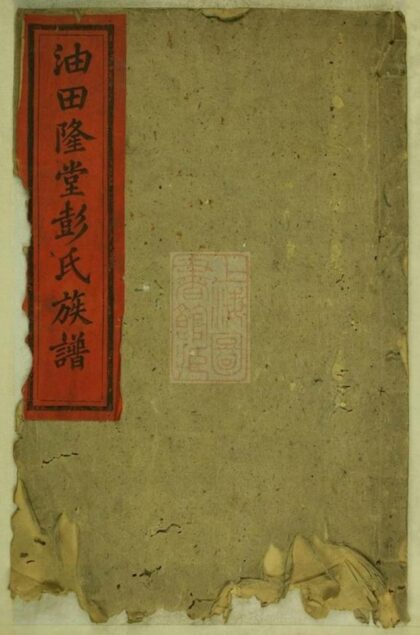 油田隆堂彭氏族譜
上海圖
書館藏